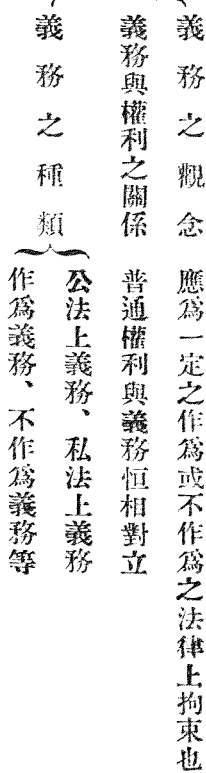 義務之觀念
應爲一定之作爲或不作爲之法律上拘束也
義務與權利之關係
普通權利與義務恒相對立
義務之種類
公法上義務、私法上義務
作爲義務、不作爲義務等